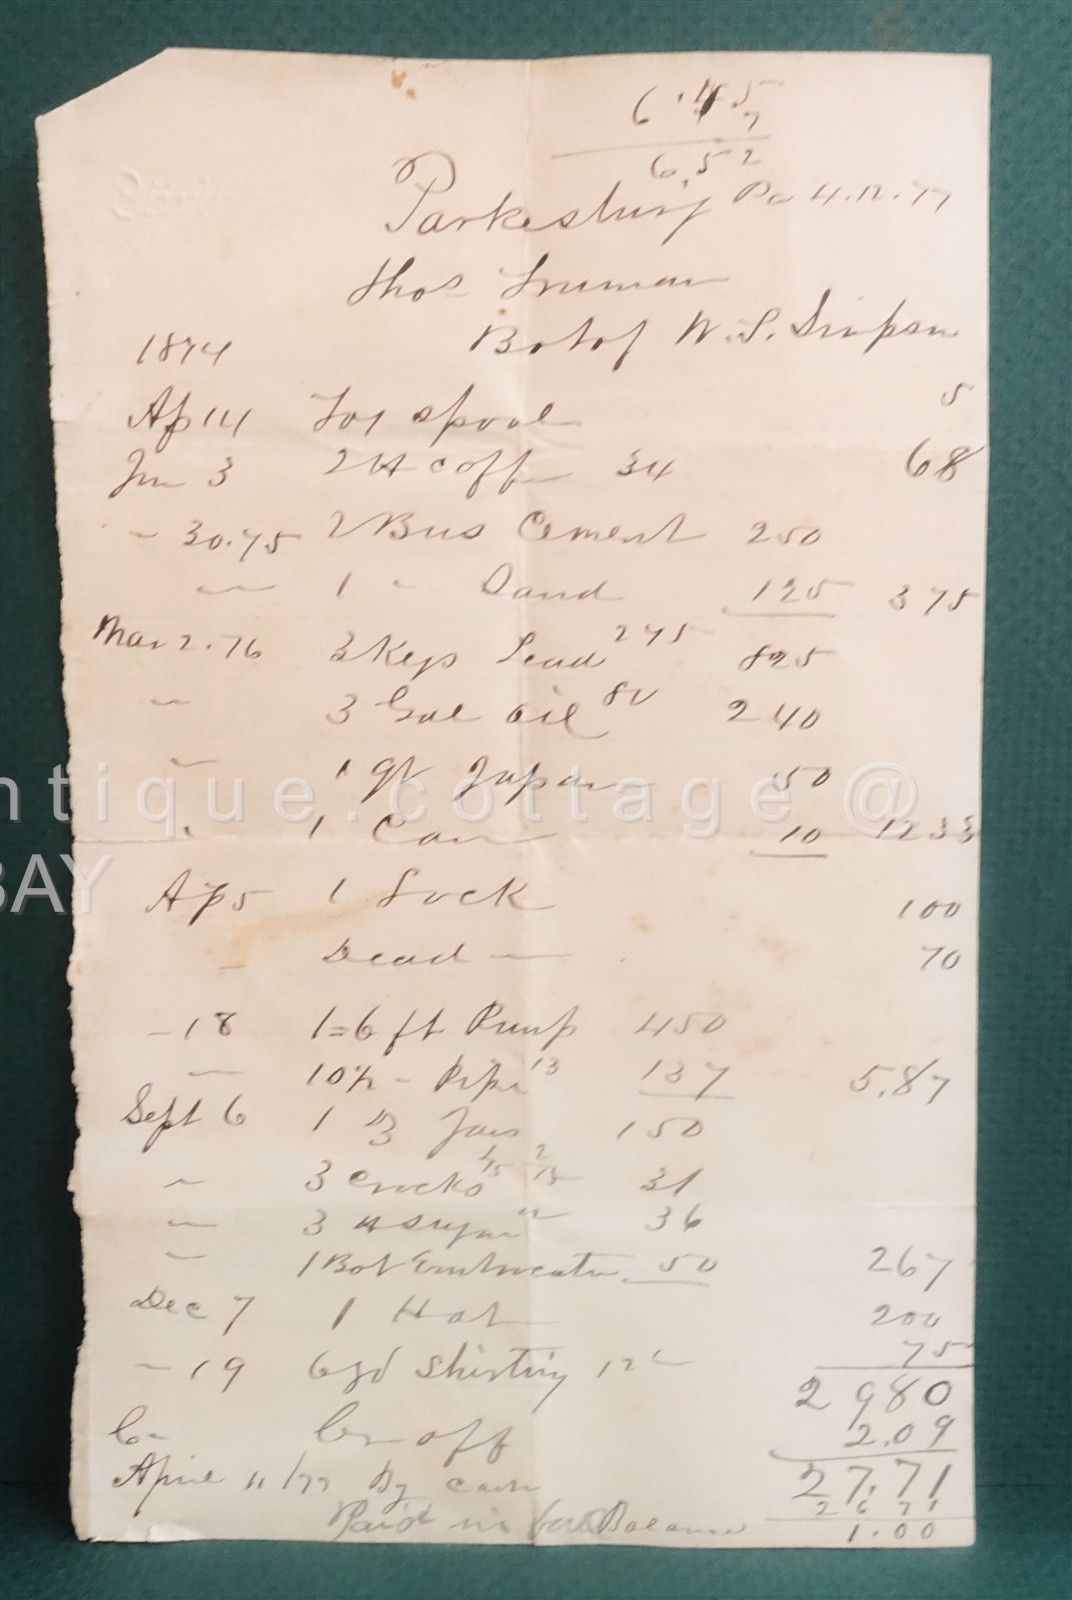 6.45
7
6.52
Parkesburg Pa 4.12.77
Thos Truman
Bot of W. S. Simpson
1874
Ap 14 To 1 spool 5
Jun 3 2 # coffee 34 68
" 30.75 2 Bus Cement 250
" 1 " Sand 125 375
Mar 2.76 3 Kegs Lead 275 825
" 3 Gal oil 80 240
" 1 qt Japan 50
" 1 Can 10 1233
ntique.cottage@
BAY
Ap 5 1 Lock 100
Lead 70
- 18 1=6 ft Pump 450
" 10½ - Pipe 13 137 5.87
Sept 6 1 Dz Jars 150
" 3 Crocks 31
" 3 # Sugar 12 36
" 1 Bot 50 267
Dec 7 1 Hat 200
" 19 6 yd Shirting 12½ 75
2980
Cr off 2.09
27.71
April 11/77 By cash 26 71
Paid in Balance 1.00